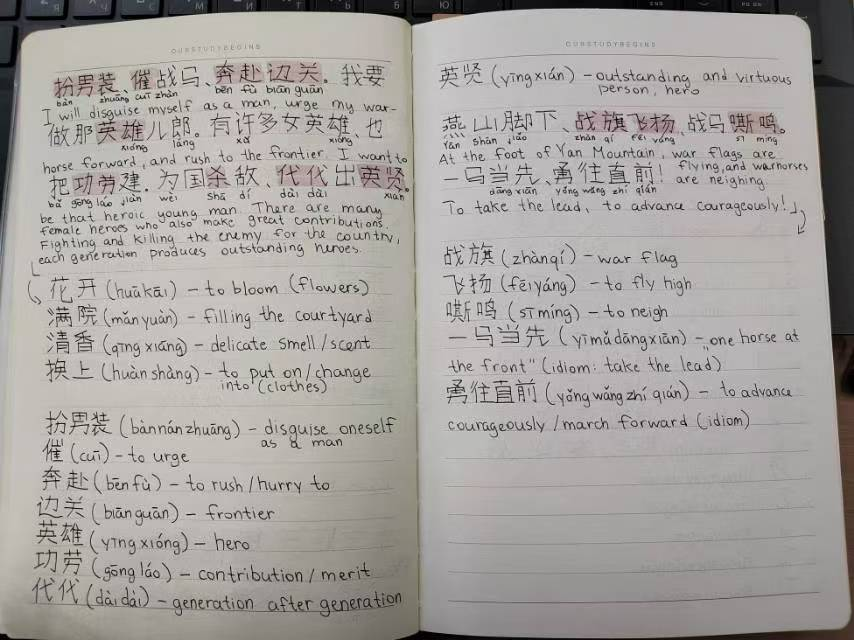 OURSTUDYBEGINS
扮男装、催战马、奔赴边关。我要
bàn zhuāng cuī zhàn bēn fù biān guān
I will disguise myself as a man, urge my war-
做那英雄儿郎。有许多女英雄、也
xióng láng xǔ xióng
horse forward, and rush to the frontier. I want to
把功劳建。为国杀敌、代代出英贤。
bǎ gōng láo jiàn wèi shā dí dài dài xián
be that heroic young man. There are many
female heroes who also make great contributions.
Fighting and killing the enemy for the country,
each generation produces outstanding heroes.
花开 (huākāi) – to bloom (flowers)
满院 (mǎnyuàn) – filling the courtyard
清香 (qīngxiāng) – delicate smell/scent
换上 (huànshàng) – to put on/change
into (clothes)
扮男装 (bànnánzhuāng) – disguise oneself
as a man
催 (cuī) – to urge
奔赴 (bēnfù) – to rush/hurry to
边关 (biānguān) – frontier
英雄 (yīngxióng) – hero
功劳 (gōngláo) – contribution/merit
代代 (dàidài) – generation after generation
OURSTUDYBEGINS
英贤 (yīngxián) – outstanding and virtuous
person, hero
燕山脚下、战旗飞扬、战马嘶鸣。
Yān shān jiǎo zhàn qí fēi yáng sī míng
At the foot of Yan Mountain, war flags are
flying, and warhorses
一马当先、勇往直前!
are neighing.
dāng xiān yǒng wǎng zhí qián
To take the lead, to advance courageously!
战旗 (zhànqí) – war flag
飞扬 (fēiyáng) – to fly high
嘶鸣 (sīmíng) – to neigh
一马当先 (yīmǎdāngxiān) – "one horse at
the front" (idiom: take the lead)
勇往直前 (yǒngwǎngzhíqián) – to advance
courageously/march forward (idiom)